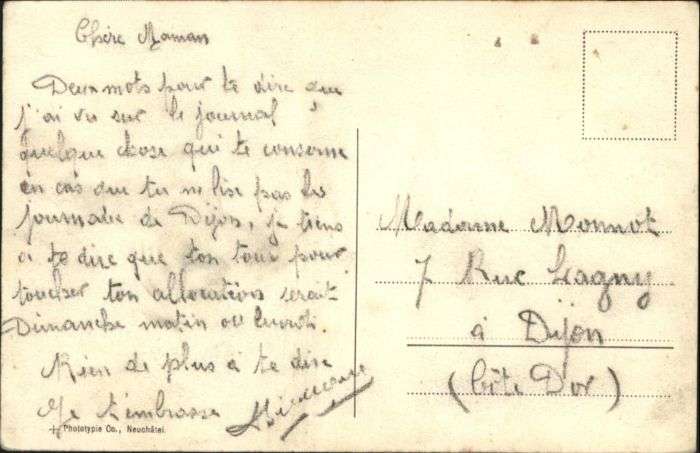 Chère Maman
Deux mots pour te dire que
j'ai vu sur le journal
quelque chose qui te conserne
en cas que tu ne lise pas les
journaux de Dijon, je tiens
a te dire que ton tour pour
toucher ton allocations serait
Dimanche matin ou lundi.
Rien de plus à te dire
Je t'embrasse
Phototypie Co., Neuchâtel.
Madame Monnot
7 Rue Lagny
à Dijon
(Côte D'or)